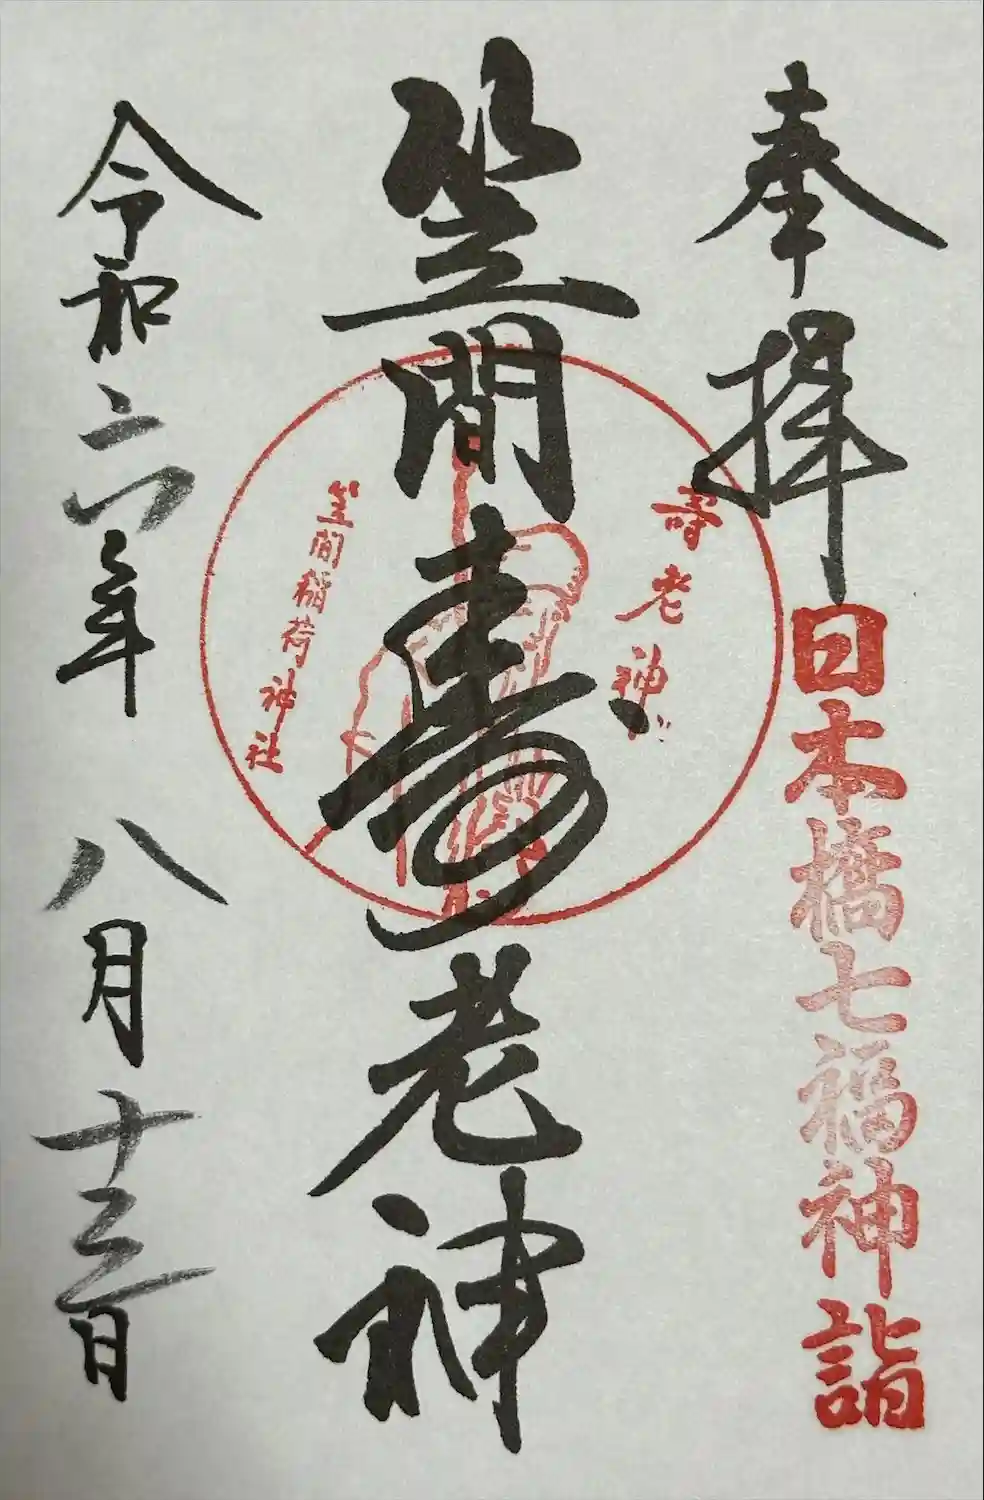 奉拝
日本橋七福神詣
笠間寿老神
壽老神
笠間稲荷神社
令和六年 八月十三日